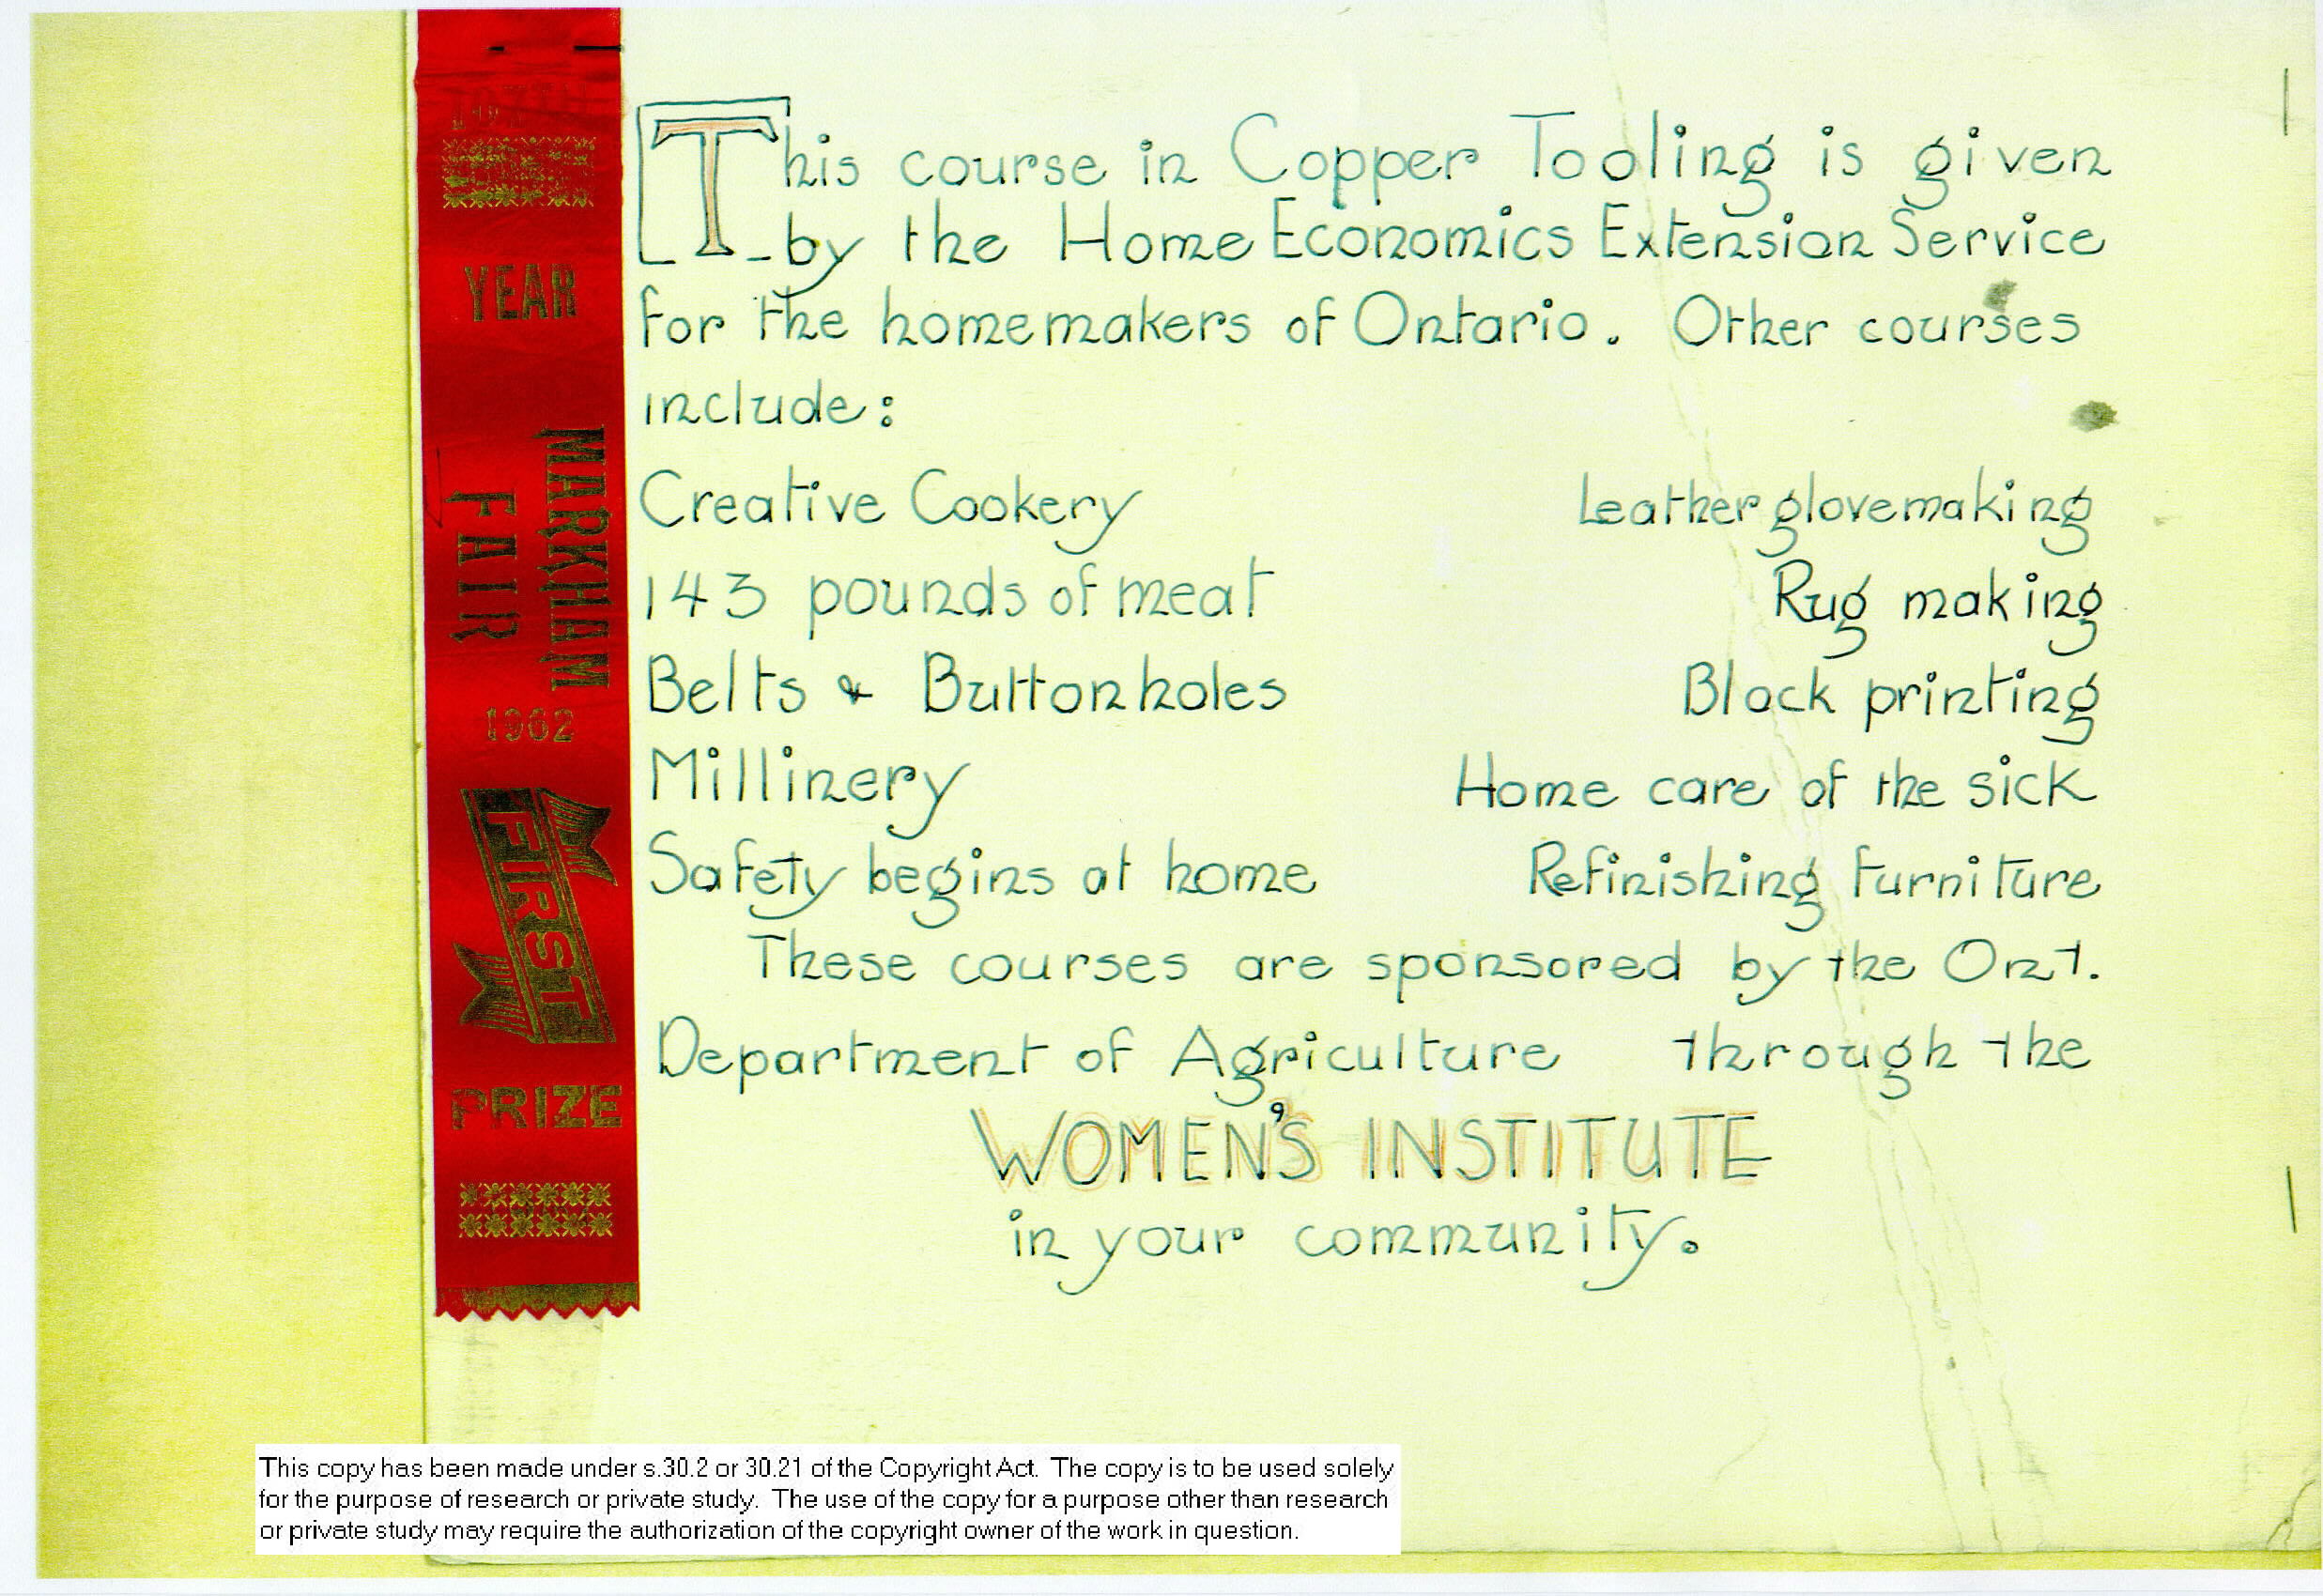 YEAR
MARKHAM
FAIR
1962
FIRST
PRIZE
This course in Copper Tooling is given
by the Home Economics Extension Service
for the homemakers of Ontario. Other courses
include:
Creative Cookery Leather glovemaking
143 pounds of meat Rug making
Belts & Buttonholes Block printing
Millinery Home care of the sick
Safety begins at home Refinishing furniture
These courses are sponsored by the Ont.
Department of Agriculture through the
WOMEN'S INSTITUTE
in your community.
This copy has been made under s.30.2 or 30.21 of the Copyright Act. The copy is to be used solely
for the purpose of research or private study. The use of the copy for a purpose other than research
or private study may require the authorization of the copyright owner of the work in question.